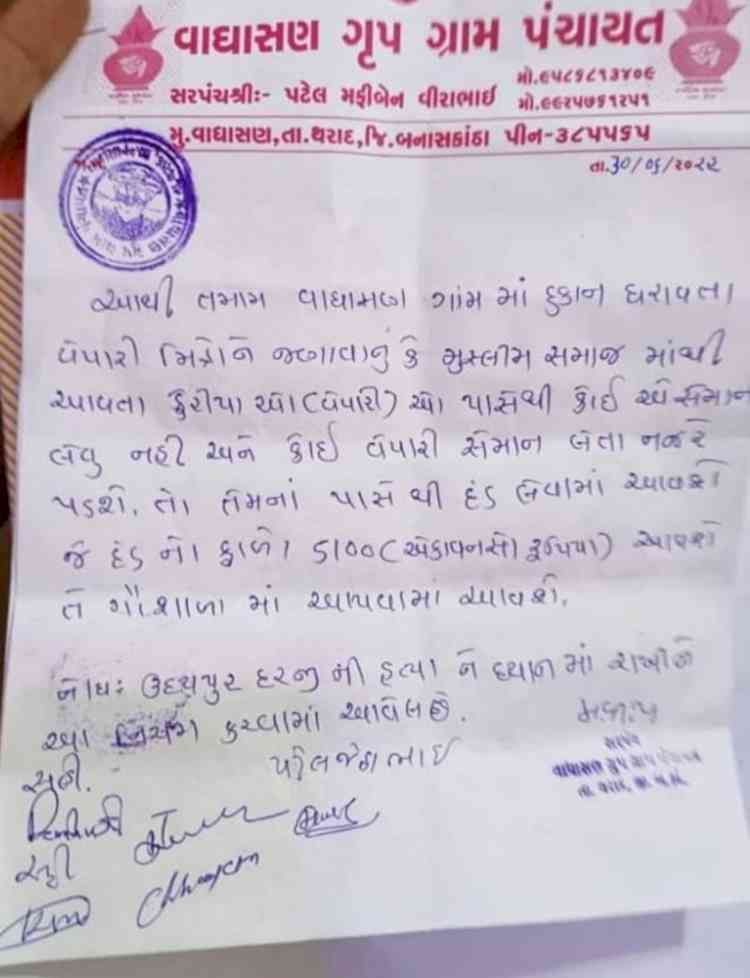 વાઘાસણ ગૃપ ગ્રામ પંચાયત
મો.૯૫૮૬૮૧૩૪૦૯
સરપંચશ્રીઃ- પટેલ મફીબેન વીરાભાઈ મો.૯૯૨૫૭૬૧૨૫૧
મુ.વાઘાસણ,તા.થરાદ,જિ.બનાસકાંઠા પીન-૩૮૫૫૬૫
તા.30/06/૨૦૨૨
આથી તમામ વાઘાસણ ગામ માં દુકાન ધરાવતા
વેપારી મિત્રોને જણાવાનું કે મુસ્લીમ સમાજ માંથી
આવતા ફેરીયા ઓ (વેપારી) ઓ પાસેથી કોઈ એ સમાન
લેવુ નહી અને કોઈ વેપારી સમાન લેતા નજરે
પડશે. તો તેમનાં પાસે થી દંડ લેવામાં આવશે
જે દંડ નો ફાળો 5100 (એકાવનસો રૂપિયા) આવશે
તે ગૌશાળા માં આપવામાં આવશે.
નોધઃ ઉદયપુર દરજી ની હત્યા ને ધ્યાન માં રાખીને
આ નિર્ણય કરવામાં આવેલ છે.
સહી.
પટેલ જેઠાભાઈ
સરપંચ
વાઘાસણ ગૃપ ગ્રામ પંચાયત
સહી